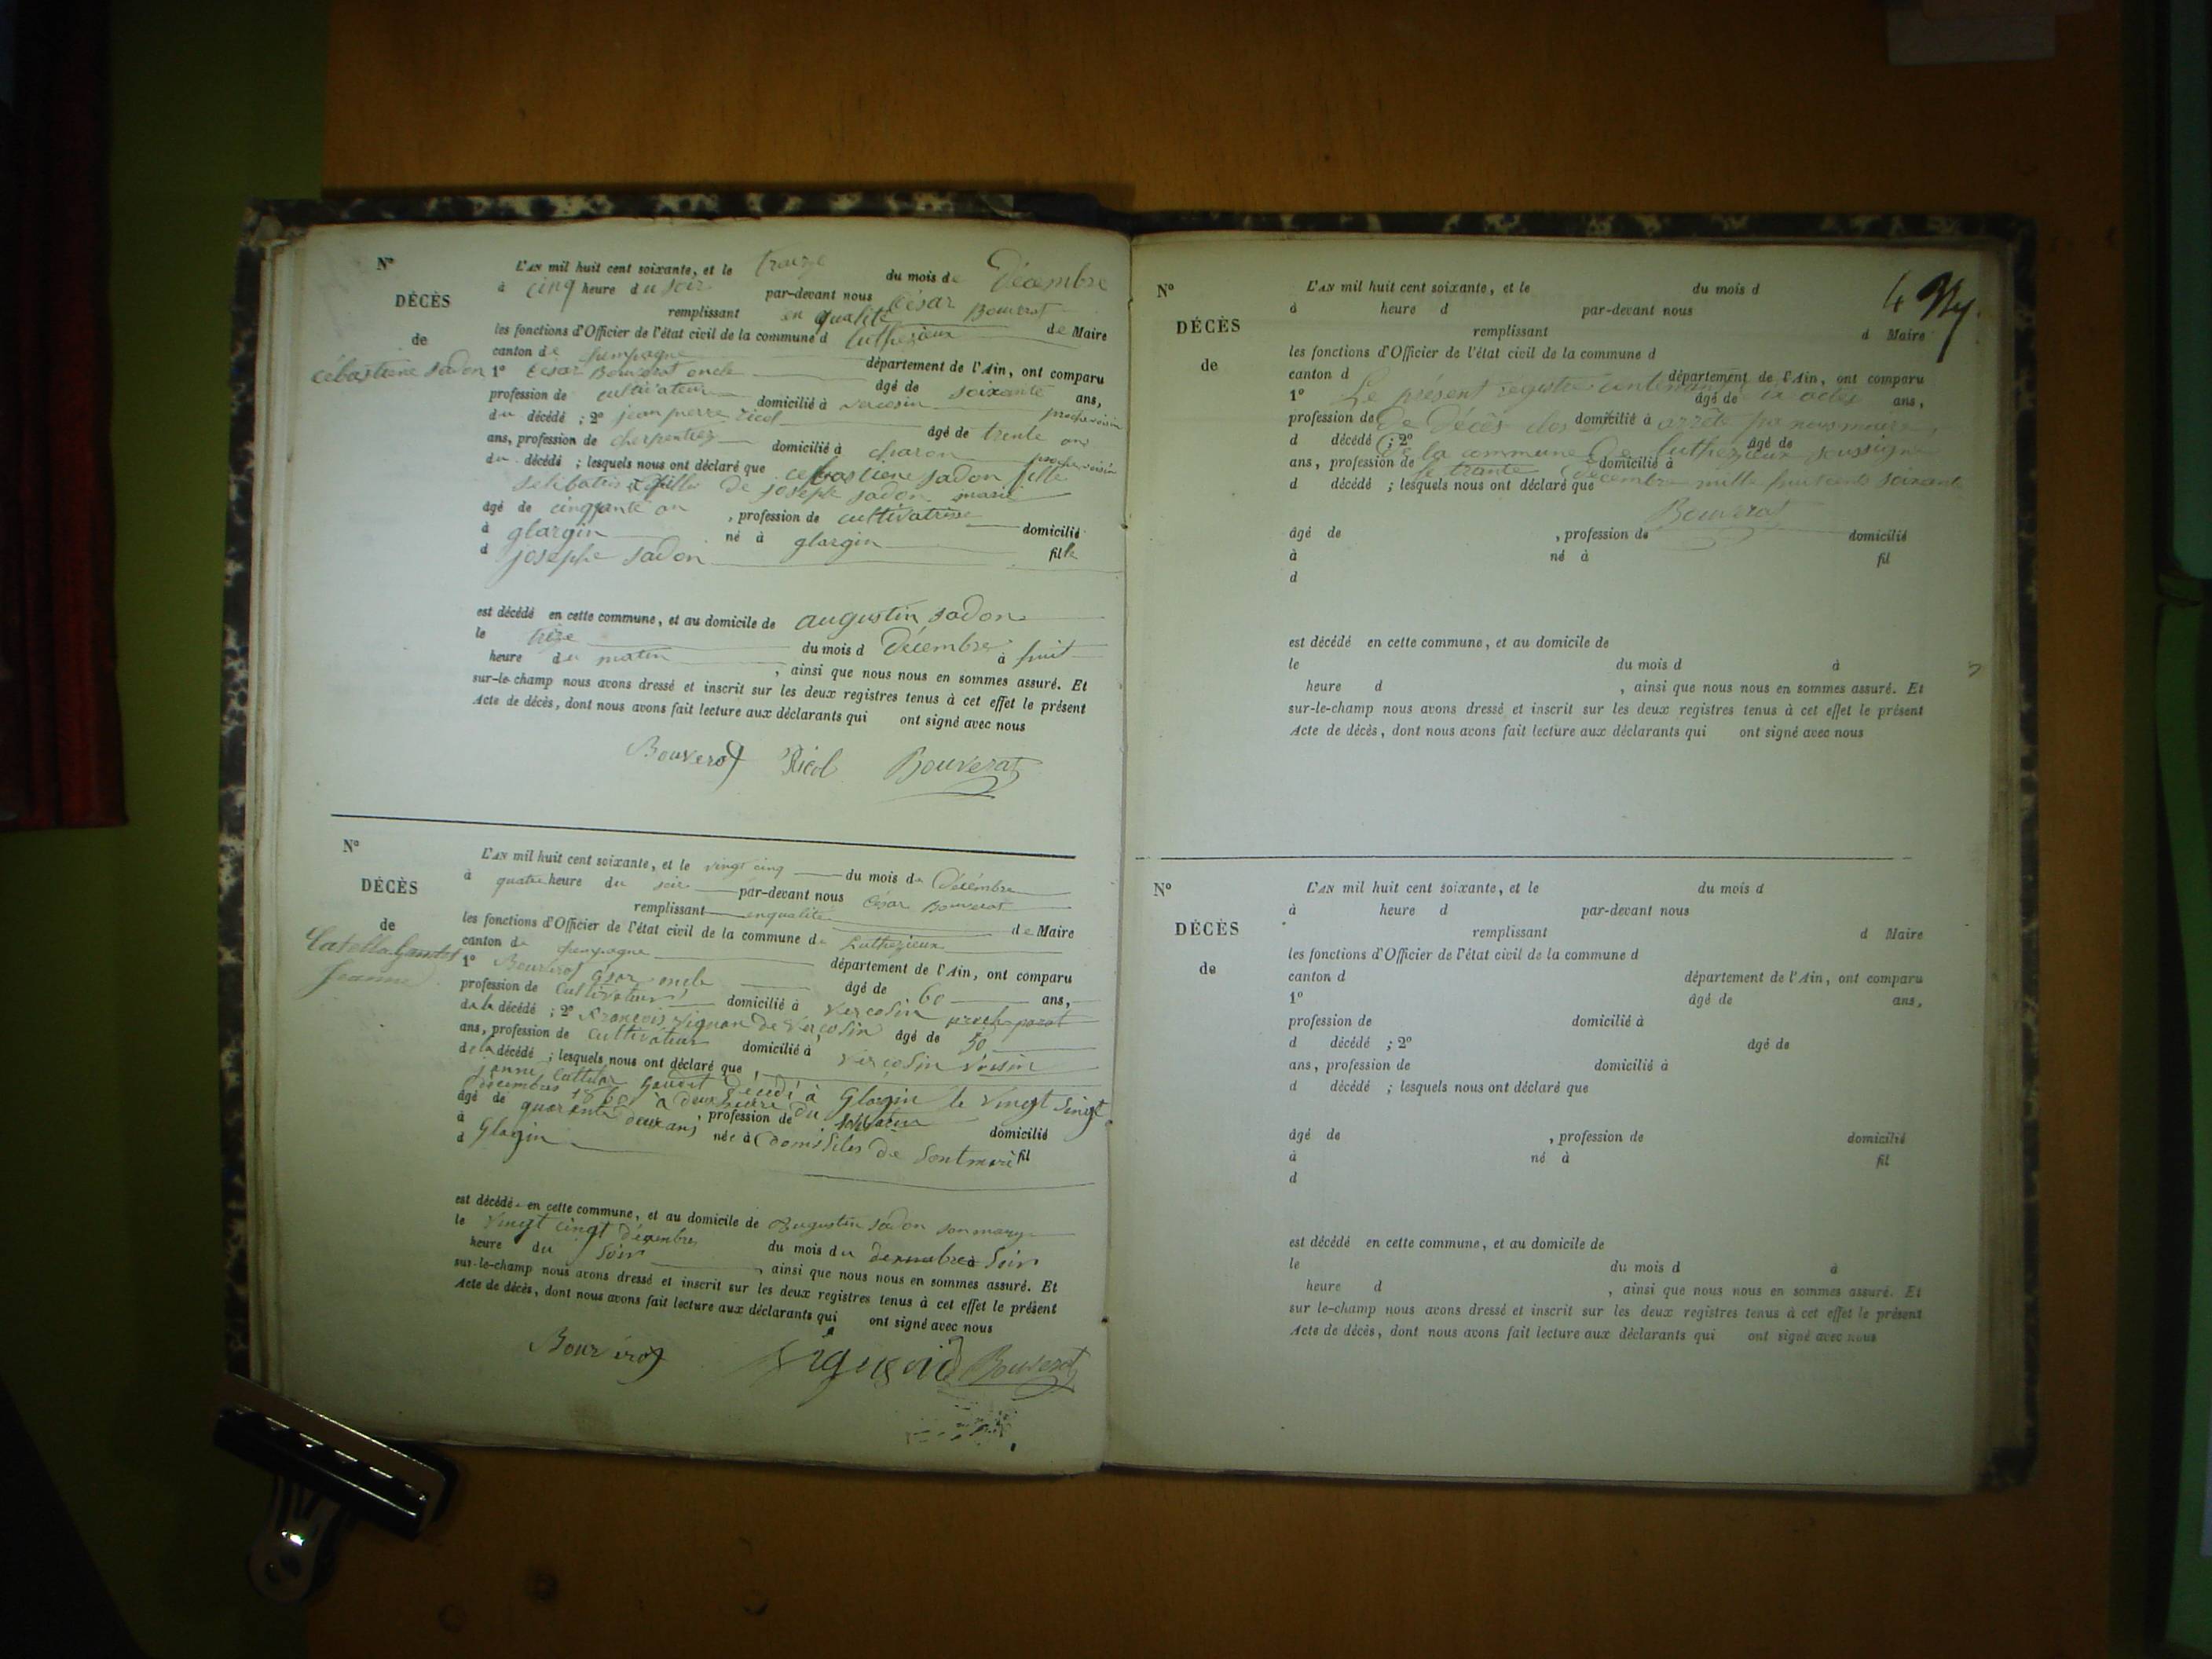 N° L'AN mil huit cent soixante, et le traize du mois de Décembre
à cinq heure du soir par-devant nous César Bouverot
DÉCÈS remplissant en qualité de Maire
les fonctions d'Officier de l'état civil de la commune d luthezieux
de canton de champagne département de l'Ain, ont comparu
cébastiene sadon 1° César Bouverot oncle âgé de soixante ans,
profession de cultivateur domicilié à vercosin proche voisin
du décédé ; 2° jean pierre Nicol âgé de trente an
ans, profession de cherpentier domicilié à charon proche voisin
du décédé ; lesquels nous ont déclaré que cebastiene sadon fille
selibater fille de joseph sadon marié
âgé de cinqante an , profession de cultivatrise domicilié
à glargin né à glargin fille
d josephe sadon
est décédé en cette commune, et au domicile de augustin sadon
le treize du mois d Décembre à huit
heure du matin , ainsi que nous nous en sommes assuré. Et
sur-le-champ nous avons dressé et inscrit sur les deux registres tenus à cet effet le présent
Acte de décès, dont nous avons fait lecture aux déclarants qui ont signé avec nous
Bouverot Nicol Bouverat
N° L'AN mil huit cent soixante, et le vingt cinq du mois de Décémbre
à quatre heure du soir par-devant nous César Bouverot
DÉCÈS remplissant enqualité de Maire
les fonctions d'Officier de l'état civil de la commune de Luthezieux
de canton de champagne département de l'Ain, ont comparu
Jeanne 1° Bouverot César oncle âgé de 60 ans,
profession de Cultivateur domicilié à Vercosin
de la décédé ; 2° François Vignon de Vercosin âgé de 50
ans, profession de cultivateur domicilié à Vercosin voisin
de la décédé ; lesquels nous ont déclaré que
janne à Glargin le vingt singt
décembre 1860 à deux heure du
âgé de quarante deux ans , profession de domicilié
à Glagin née à Domisiles de fil
d
est décédé en cette commune, et au domicile de augustin sadon son mary
le vingt cingt décembre du mois du décembre à Soir
heure du Soir , ainsi que nous nous en sommes assuré. Et
sur-le-champ nous avons dressé et inscrit sur les deux registres tenus à cet effet le présent
Acte de décès, dont nous avons fait lecture aux déclarants qui ont signé avec nous
Bouverot Bouverat
4
N° L'AN mil huit cent soixante, et le du mois d
à heure d par-devant nous
DÉCÈS remplissant d Maire
les fonctions d'Officier de l'état civil de la commune d
de canton d département de l'Ain, ont comparu
1° Le présent registre contenant actes âgé de ans,
profession de de Décès clos domicilié à arrêté par nous maire
d décédé ; 2° de la commune de luthezieux soussigné âgé de
ans, profession de le trante domicilié à
d décédé ; lesquels nous ont déclaré que décembre mille huit cents soixante
Bouverat
âgé de , profession de domicilié
à né à fil
d
est décédé en cette commune, et au domicile de
le du mois d à
heure d , ainsi que nous nous en sommes assuré. Et
sur-le-champ nous avons dressé et inscrit sur les deux registres tenus à cet effet le présent
Acte de décès, dont nous avons fait lecture aux déclarants qui ont signé avec nous
N° L'AN mil huit cent soixante, et le du mois d
à heure d par-devant nous
DÉCÈS remplissant d Maire
les fonctions d'Officier de l'état civil de la commune d
de canton d département de l'Ain, ont comparu
1° âgé de ans,
profession de domicilié à
d décédé ; 2° âgé de
ans, profession de domicilié à
d décédé ; lesquels nous ont déclaré que
âgé de , profession de domicilié
à né à fil
d
est décédé en cette commune, et au domicile de
le du mois d à
heure d , ainsi que nous nous en sommes assuré. Et
sur le-champ nous avons dressé et inscrit sur les deux registres tenus à cet effet le présent
Acte de décès, dont nous avons fait lecture aux déclarants qui ont signé avec nous